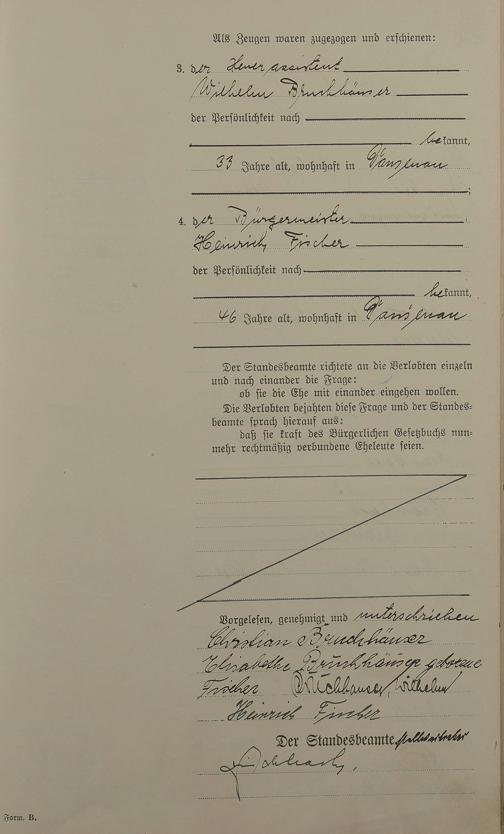 Als Zeugen waren zugezogen und erschienen:
3. der
Wilhelm Bruchhäuser
der Persönlichkeit nach
bekannt,
33 Jahre alt, wohnhaft in Dausenau
;
4. der Bürgermeister
Heinrich Fischer
der Persönlichkeit nach
bekannt,
46 Jahre alt, wohnhaft in Dausenau
Der Standesbeamte richtete an die Verlobten einzeln
und nach einander die Frage:
ob sie die Ehe mit einander eingehen wollen.
Die Verlobten bejahten diese Frage und der Standes-
beamte sprach hierauf aus:
daß sie kraft des Bürgerlichen Gesetzbuchs nun-
mehr rechtmäßig verbundene Eheleute seien.
Vorgelesen, genehmigt und unterschrieben
Christian Bruchhäuser
Elisabethe Bruchhäuser geborene
Fischer Bruchhäuser, Wilhelm
Heinrich Fischer
Der Standesbeamte
Form. B.